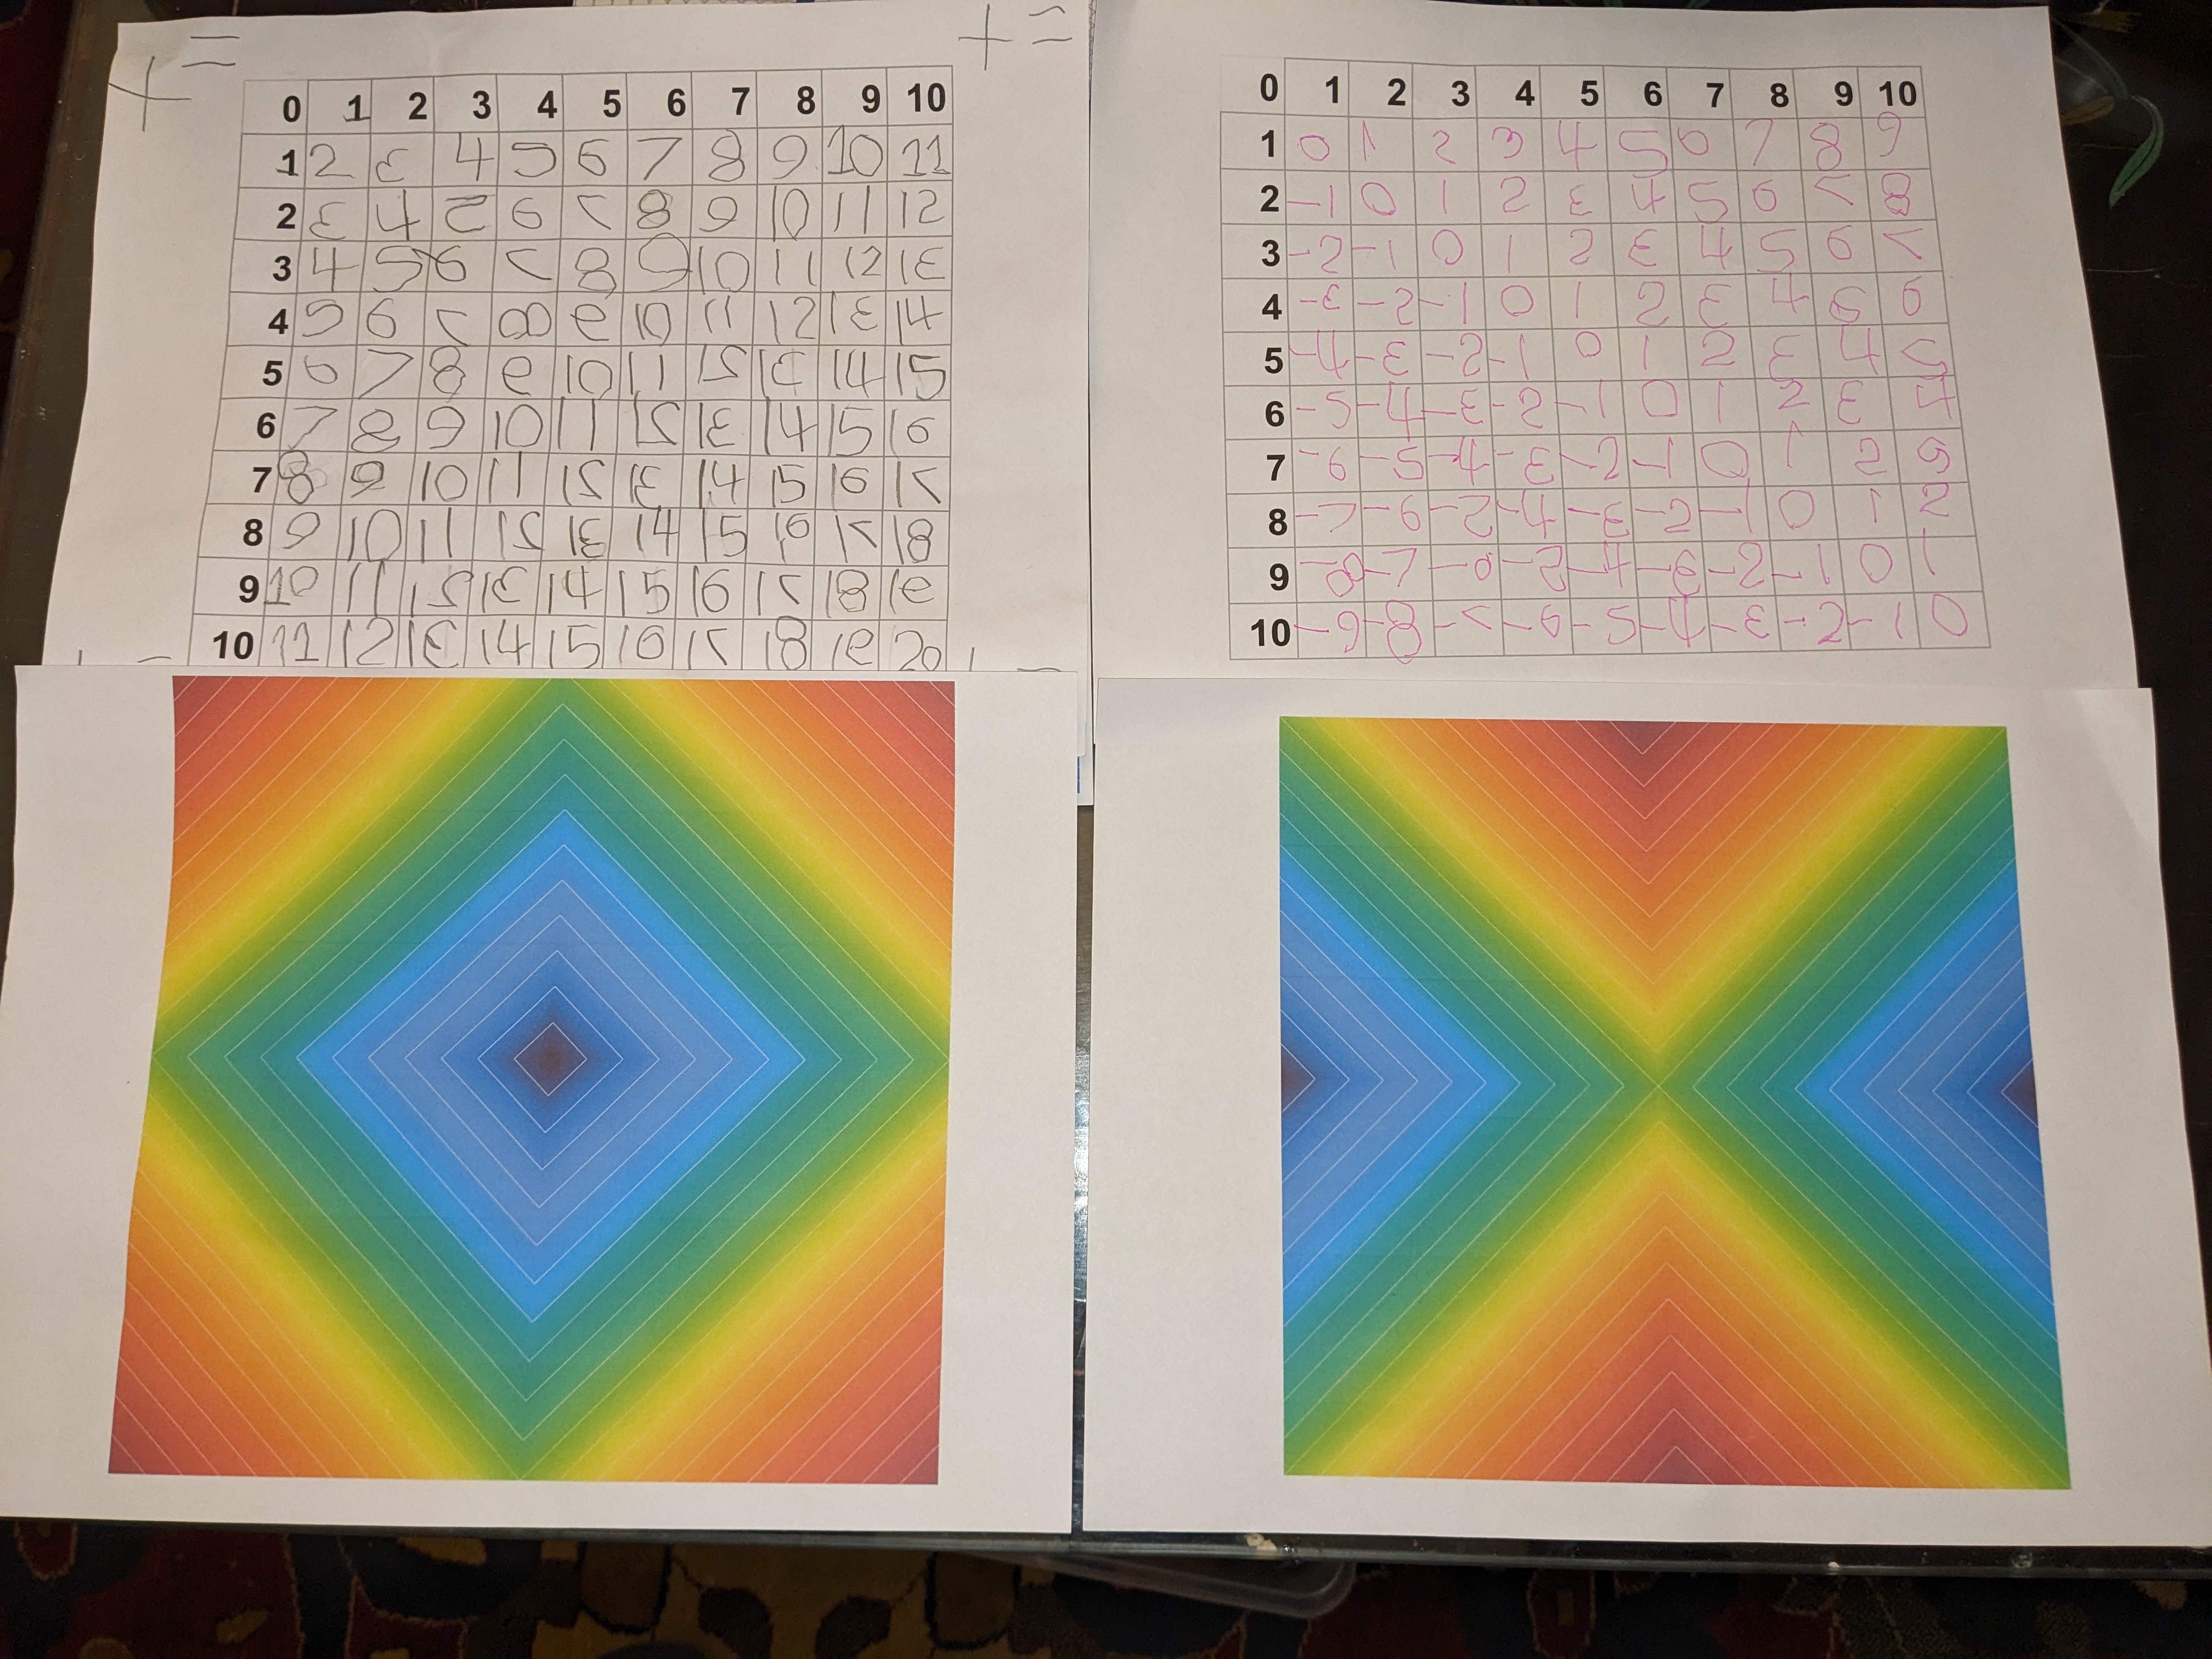 + =
+ =
0 1 2 3 4 5 6 7 8 9 10
1 2 3 4 5 6 7 8 9 10 11
2 3 4 5 6 7 8 9 10 11 12
3 4 5 6 7 8 9 10 11 12 13
4 5 6 7 8 9 10 11 12 13 14
5 6 7 8 9 10 11 12 13 14 15
6 7 8 9 10 11 12 13 14 15 16
7 8 9 10 11 12 13 14 15 16 17
8 9 10 11 12 13 14 15 16 17 18
9 10 11 12 13 14 15 16 17 18 19
10 11 12 13 14 15 16 17 18 19 20
0 1 2 3 4 5 6 7 8 9 10
1 0 1 2 3 4 5 6 7 8 9
2 -1 0 1 2 3 4 5 6 7 8
3 -2 -1 0 1 2 3 4 5 6 7
4 -3 -2 -1 0 1 2 3 4 5 6
5 -4 -3 -2 -1 0 1 2 3 4 5
6 -5 -4 -3 -2 -1 0 1 2 3 4
7 -6 -5 -4 -3 -2 -1 0 1 2
8 -7 -6 -5 -4 -3 -2 -1 0 1 2
9 -8 -7 -6 -5 -4 -3 -2 -1 0 1
10 -9 -8 -7 -6 -5 -4 -3 -2 -1 0